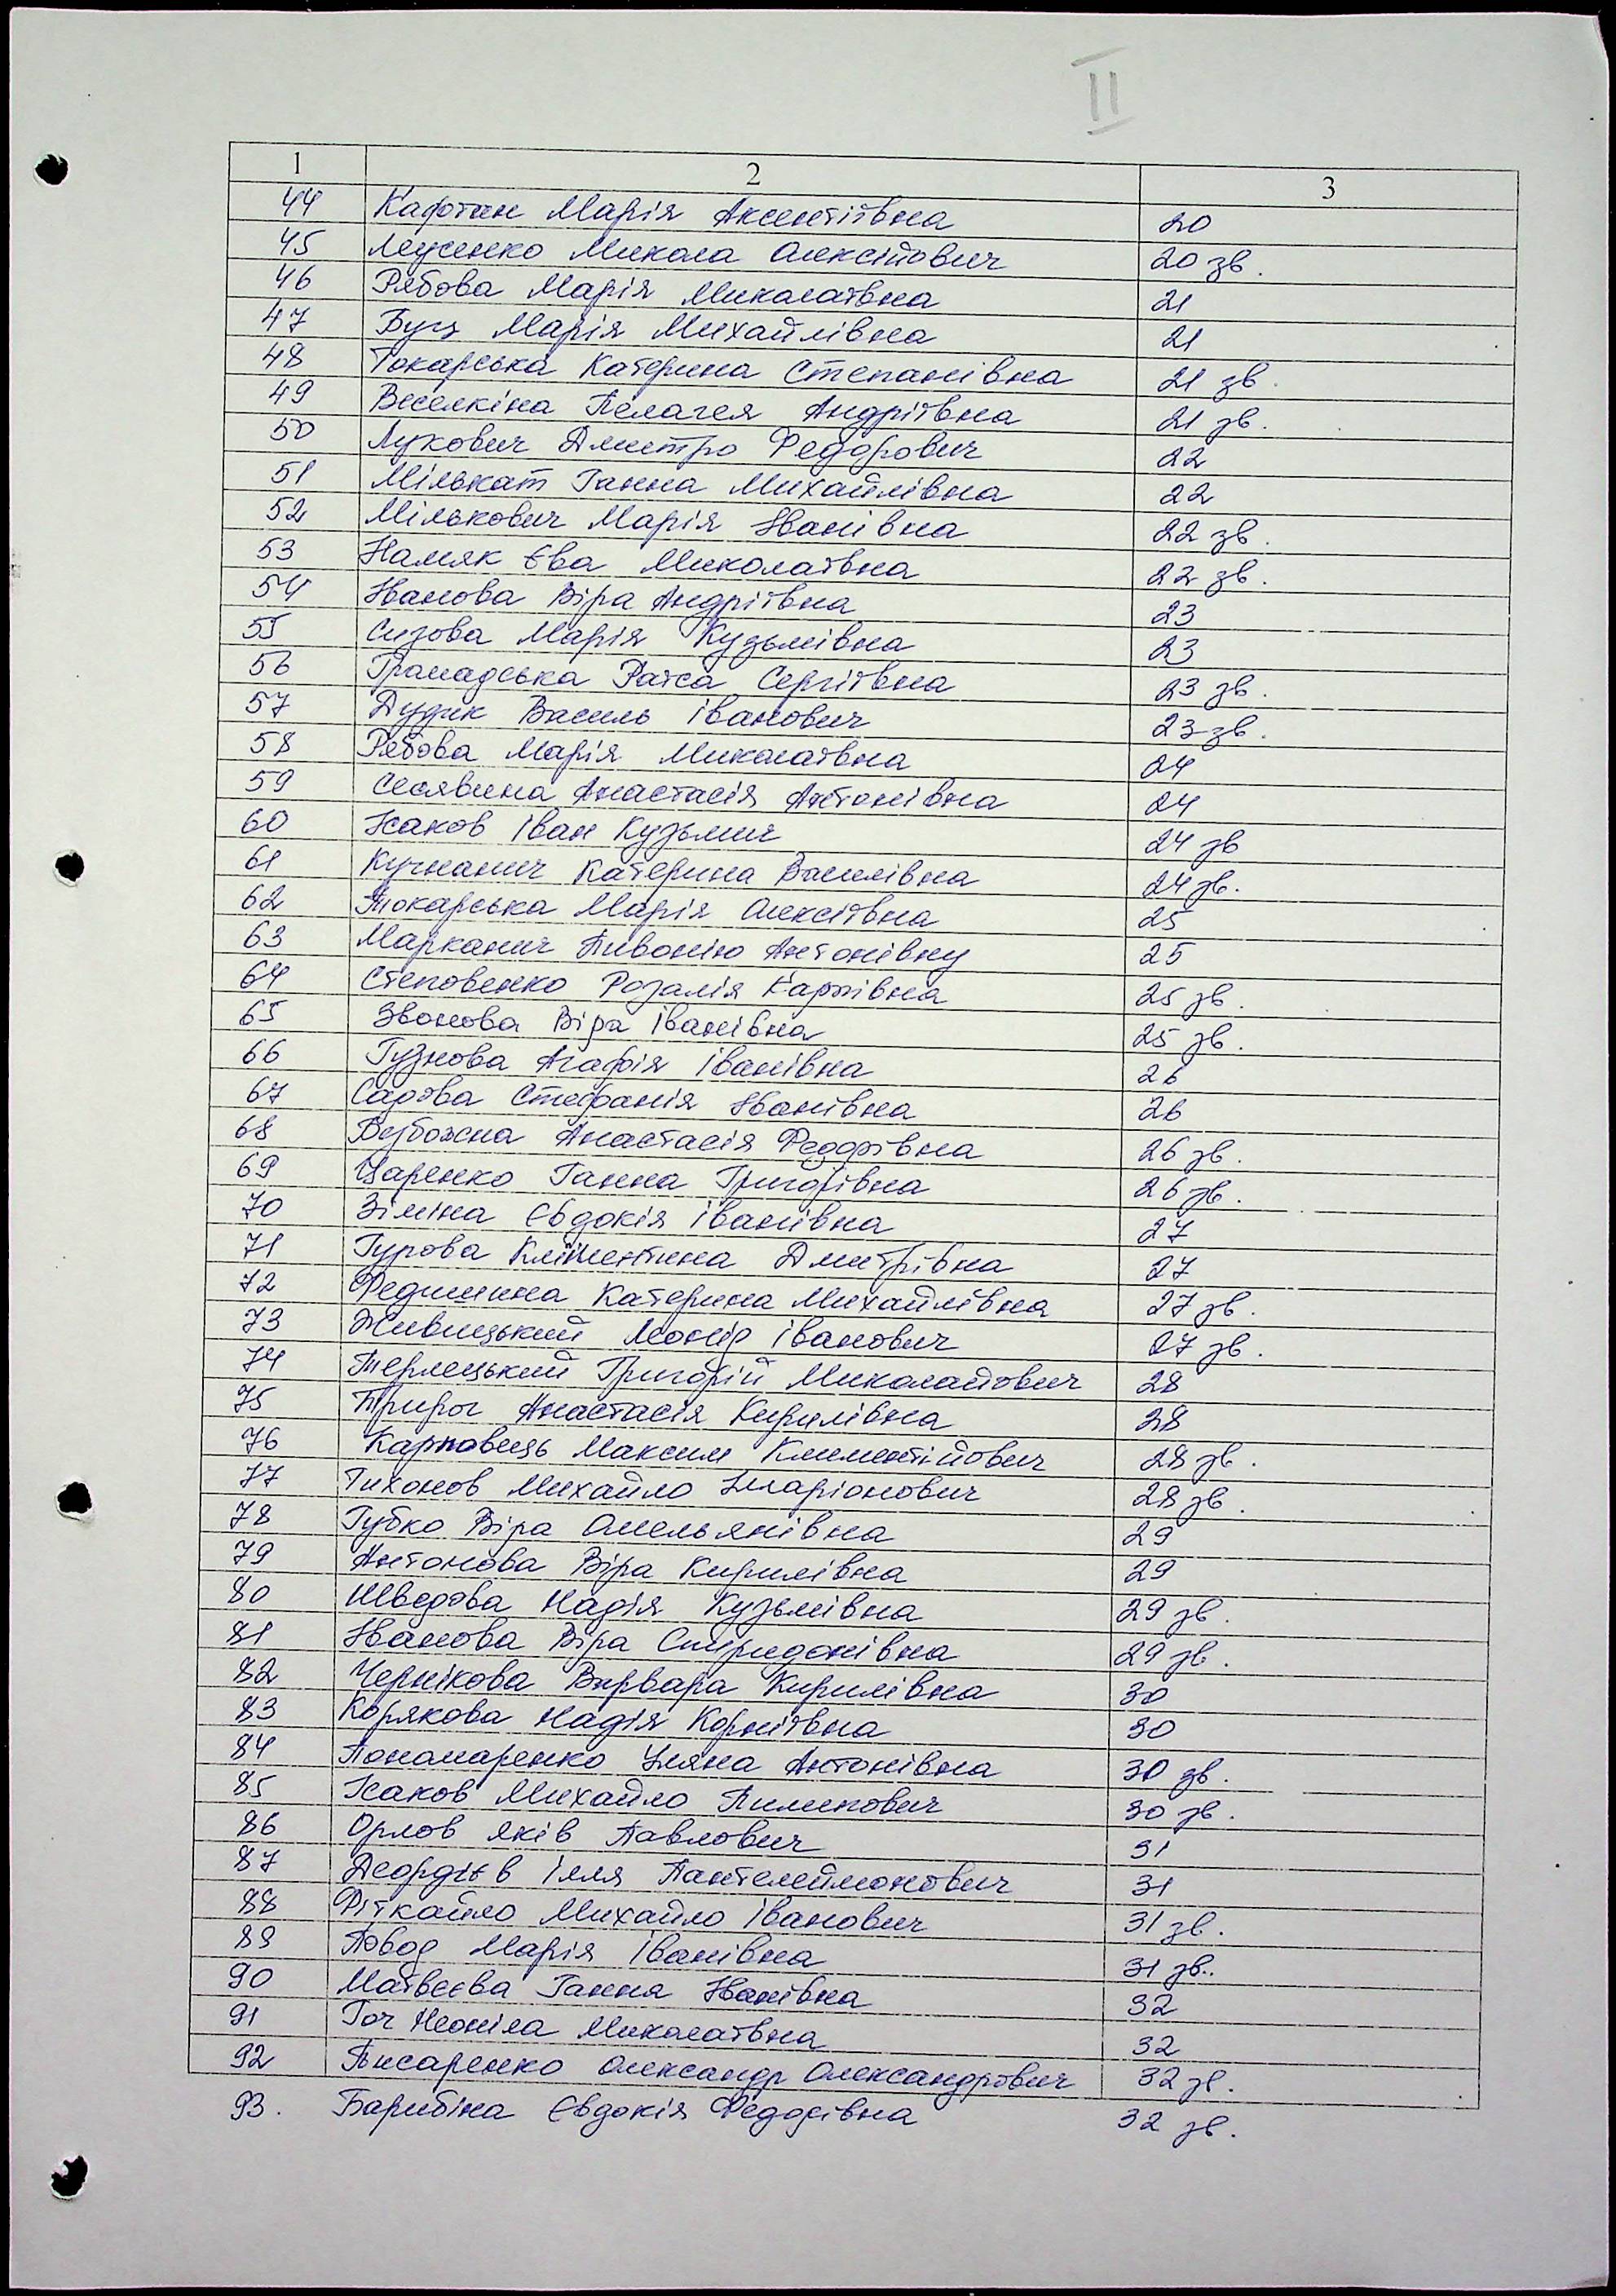 II
1 2 3
44 Кафтан Марія Аксентіївна 20
45 Леусенко Микола Олексійович 20 зв.
46 Рябова Марія Миколаївна 21
47 Буц Марія Михайлівна 21
48 Токарська Катерина Степанівна 21 зв.
49 Веселкіна Пелагея Андріївна 21 зв.
50 Лукович Дмитро Федорович 22
51 Мількат Ганна Михайлівна 22
52 Мількович Марія Іванівна 22 зв.
53 Намяк Єва Миколаївна 22 зв.
54 Іванова Віра Андріївна 23
55 Сизова Марія Кузьмівна 23
56 Грамадська Раїса Сергіївна 23 зв.
57 Дудик Василь Іванович 23 зв.
58 Рябова Марія Миколаївна 24
59 Селявина Анастасія Антонівна 24
60 Ісаков Іван Кузьмич 24 зв
61 Кучканич Катерина Василівна 24 зв.
62 Токарська Марія Олексіївна 25
63 Марканич Пивонію Антонівну 25
64 Степовенко Розалія Карлівна 25 зв.
65 Звонова Віра Іванівна 25 зв.
66 Гузнова Агафія Іванівна 26
67 Садова Стефанія Іванівна 26
68 Вербожна Анастасія Федорівна 26 зв.
69 Царенко Ганна Григорівна 26 зв.
70 Зіміна Євдокія Іванівна 27
71 Гурова Кліментина Дмитрівна 27
72 Федишина Катерина Михайлівна 27 зв.
73 Живицький Леонід Іванович 27 зв.
74 Терлецький Григорій Миколайович 28
75 Прирог Анастасія Кирилівна 28
76 Карповець Максим Климентійович 28 зв.
77 Тихонов Михайло Іларіонович 28 зв.
78 Губко Віра Омельянівна 29
79 Антонова Віра Кирилівна 29
80 Шведова Надія Кузьмівна 29 зв.
81 Іванова Віра Спиридонівна 29 зв.
82 Чернікова Варвара Кирилівна 30
83 Корякова Надія Корніївна 30
84 Понамаренко Уляна Антонівна 30 зв.
85 Ісаков Михайло Пименович 30 зв.
86 Орлов Яків Павлович 31
87 Деордієв Ілля Пантелеймонович 31
88 Фіткайло Михайло Іванович 31 зв.
89 Повод Марія Іванівна 31 зв..
90 Матвеєва Ганна Іванівна 32
91 Гоч Неоніла Миколаївна 32
92 Писаренко Олександр Олександрович 32 зв.
93. Барибіна Євдокія Федорівна 32 зв.